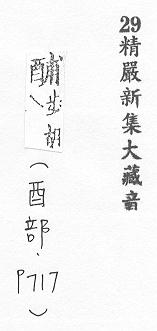 29精嚴新集大藏音
酺步胡
(酉部.
P717)